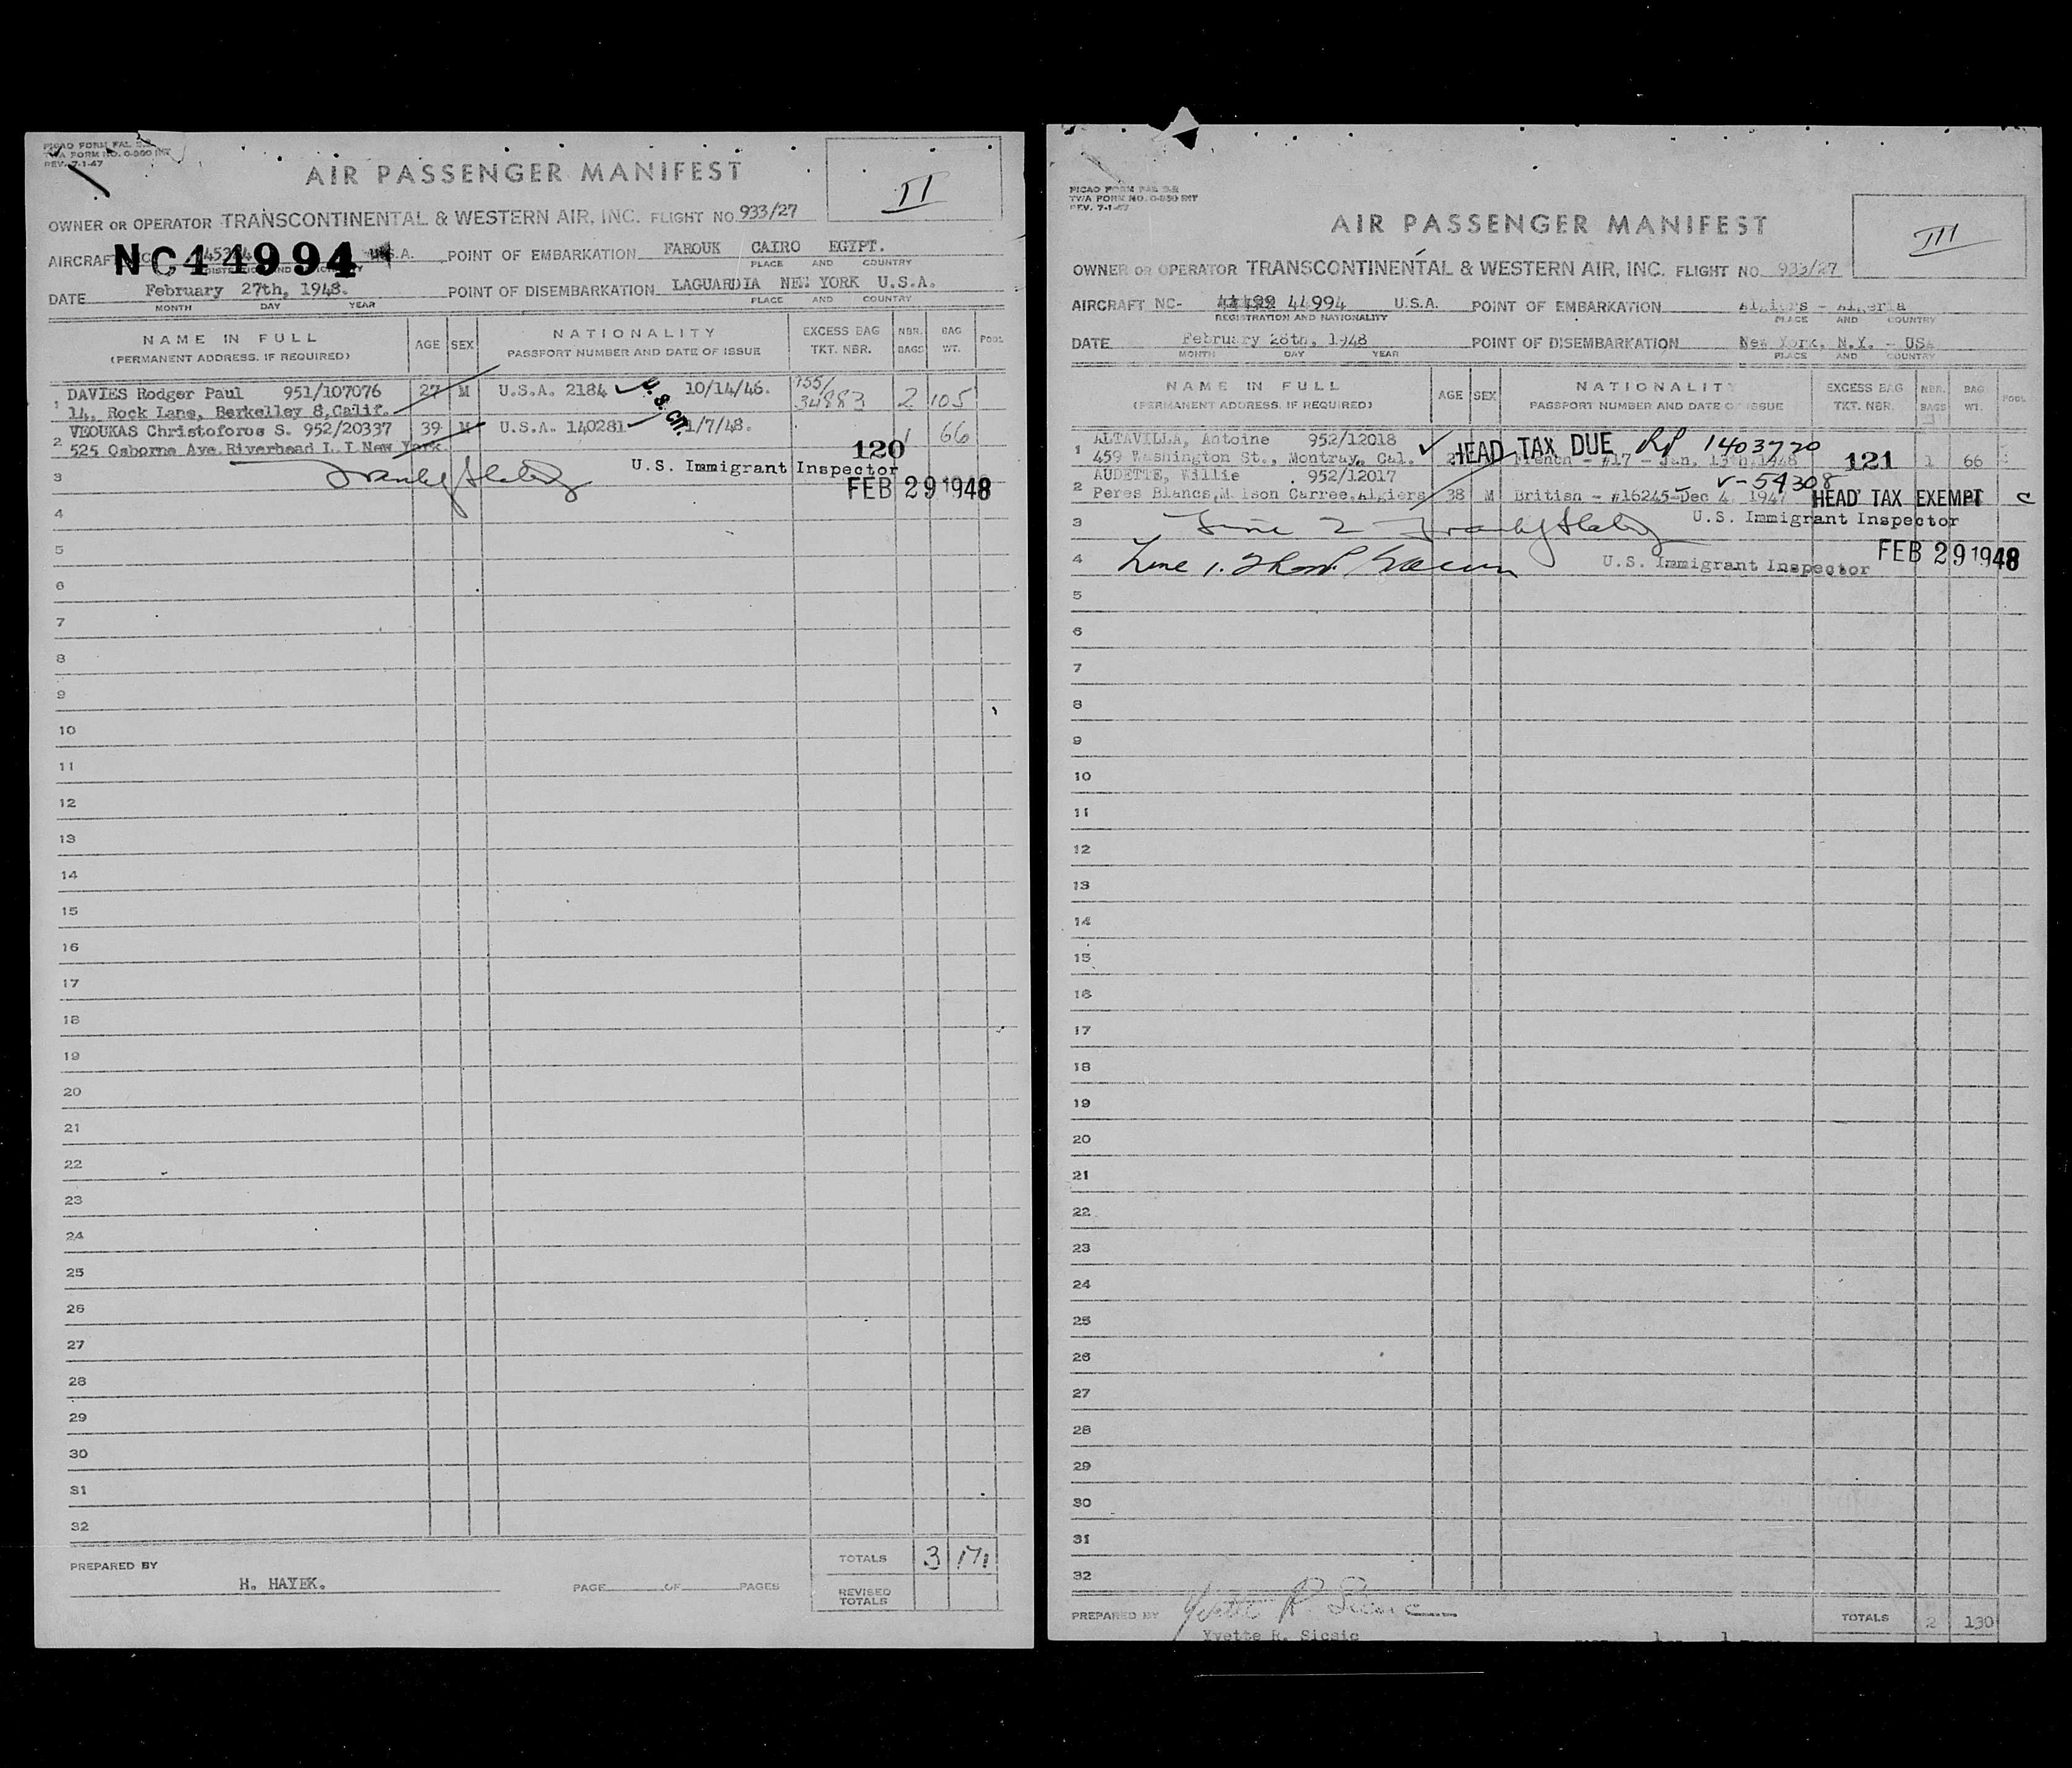 PICAO FORM FAL 2.2
TWA FORM NO. O-850 INT
REV. 7-1-47
AIR PASSENGER MANIFEST
II
OWNER OR OPERATOR TRANSCONTINENTAL & WESTERN AIR, INC. FLIGHT NO. 933/27
AIRCRAFT NC44994 U.S.A. POINT OF EMBARKATION FAROUK CAIRO EGYPT.
PLACE AND COUNTRY
DATE February 27th, 1948. POINT OF DISEMBARKATION LAGUARDIA NEW YORK U.S.A.
MONTH DAY YEAR PLACE AND COUNTRY
NAME IN FULL AGE SEX NATIONALITY EXCESS BAG NBR. BAG POOL
(PERMANENT ADDRESS, IF REQUIRED) PASSPORT NUMBER AND DATE OF ISSUE TKT. NBR. BAGS WT.
1 DAVIES Rodger Paul 951/107076 27 M U.S.A. 2184 U.S. CIT. 10/14/46. 155/34883 2 105
14, Rock Lane, Berkelley 8, Calif.
2 VEOUKAS Christoforos S. 952/20337 39 M U.S.A. 140281 1/7/48. 1 66
525 Osborne Ave.Riverhead L.I.New York
120
U.S. Immigrant Inspector
FEB 29 1948
3
4
5
6
7
8
9
10
11
12
13
14
15
16
17
18
19
20
21
22
23
24
25
26
27
28
29
30
31
32
PREPARED BY TOTALS 3 171
H. HAYEK. PAGE OF PAGES REVISED TOTALS
PICAO FORM FAL 2.2
TWA FORM NO. O-850 INT
REV. 7-1-47
AIR PASSENGER MANIFEST
III
OWNER OR OPERATOR TRANSCONTINENTAL & WESTERN AIR, INC. FLIGHT NO. 933/27
AIRCRAFT NC- 44994 U.S.A. POINT OF EMBARKATION Algiers - Algeria
REGISTRATION AND NATIONALITY PLACE AND COUNTRY
DATE February 28th, 1948 POINT OF DISEMBARKATION New York, N.Y. - USA
MONTH DAY YEAR PLACE AND COUNTRY
NAME IN FULL AGE SEX NATIONALITY EXCESS BAG NBR. BAG POOL
(PERMANENT ADDRESS, IF REQUIRED) PASSPORT NUMBER AND DATE OF ISSUE TKT. NBR. BAGS WT.
1 ALTAVILLA, Antoine 952/12018 HEAD TAX DUE 1403770
459 Washington St., Montray, Cal. French - #17 - Jan. 13th, 1948 121 1 66
2 AUDETTE, Willie 952/12017 V-54308
Peres Blancs, Maison Carree, Algiers 38 M British - #16245-Dec 4, 1947 HEAD TAX EXEMPT C
3 Line 2 U.S. Immigrant Inspector
FEB 29 1948
4 Line 1. U.S. Immigrant Inspector
5
6
7
8
9
10
11
12
13
14
15
16
17
18
19
20
21
22
23
24
25
26
27
28
29
30
31
32
PREPARED BY Yvette R. Sicsic TOTALS 2 130
Yvette R. Sicsic 1 1